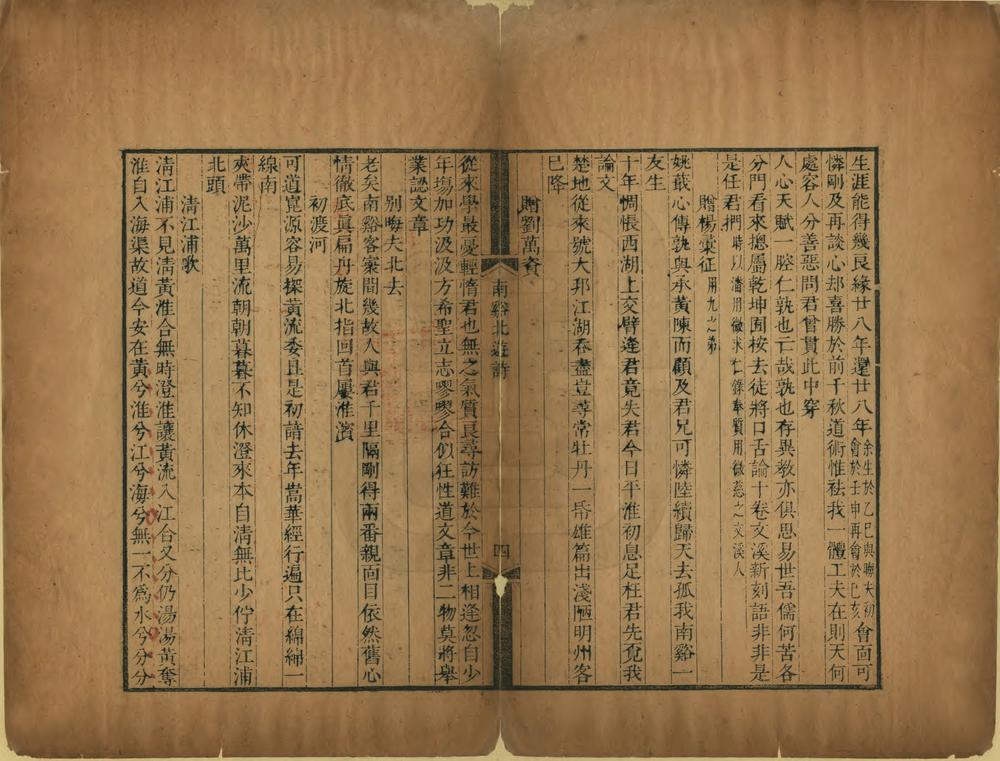 生涯能得幾良緣廿八年還廿八年余生於乙巳與聯夫初會於壬申再會於己亥會面可
憐剛及再談心却喜勝於前千秋道術惟袪我一體工夫在則天何
處容人分善惡問君曾貫此中穿
人心天賦一腔仁孰也亡哉孰也存異教亦俱思易世吾儒何苦各
分門看來摠屬乾坤囿桉去徒將口舌論十卷文溪新刻語非非是
是任君捫時以潘用微求仁錄奉質用微慈之文溪人
贈楊蒙征用九之弟
姚蕺心傳孰與承黃陳而顧及君兄可憐陸續歸天去孤我南谿一
友生
十年惆悵西湖上交臂逢君竟失君今日平淮初息足枉君先覓我
論文
楚地從來號大邦江湖吞盡豈尋常牡丹一帋雄篇出淺陋明州客
已降
贈劉萬資
南谿北遊詩
四
從來學最憂輕惰君也無之氣質良尋訪難於今世上相逢忽自少
年塲加功汲汲方希聖立志嘐嘐合似狂性道文章非二物莫將舉
業認文章
別晦夫北去
老矣南谿客案間幾故人與君千里隔剛得兩番親面目依然舊心
情徹底眞扁舟旋北指囘首屢淮濱
初渡河
可道崑源容易探黃流委且是初諳去年嵩華經行遍只在綿綿一
線南
夾帶泥沙萬里流朝朝暮暮不知休澄來本自淸無比少佇淸江浦
北頭
淸江浦歌
淸江浦不見淸黃淮合無時澄淮讓黃流入江台又分仍湯湯黃奪
淮自入海渠故道今安在黃兮淮兮江兮海兮無一不爲水兮分分